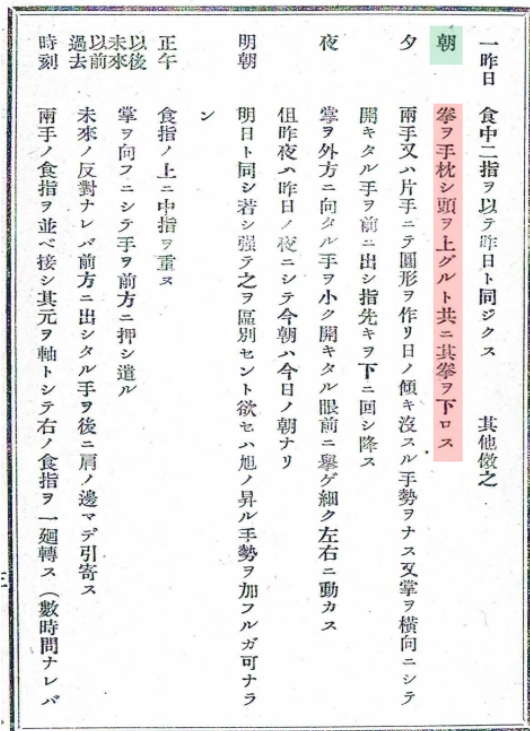 一昨日　食中二指ヲ以テ昨日ト同ジクス　其他傚之
朝　拳ヲ手枕シ頭ヲ上グルト共ニ其拳ヲ下ロス
夕　兩手又ハ片手ニテ圓形ヲ作リ日ノ傾キ沒スル手勢ヲナス又掌ヲ橫向ニシテ
開キタル手ヲ前ニ出シ指先キヲ下ニ回シ降ス
夜　掌ヲ外方ニ向タル手ヲ小ク開キタル眼前ニ擧ゲ細ク左右ニ動カス
但昨夜ハ昨日ノ夜ニシテ今朝ハ今日ノ朝ナリ
明朝　明日ト同シ若シ强テ之ヲ區別セント欲セハ旭ノ昇ル手勢ヲ加フルガ可ナラ
ン
正午　食指ノ上ニ中指ヲ重ス
以後未來　掌ヲ向フニシテ手ヲ前方ニ押シ遣ル
以前過去　未來ノ反對ナレバ前方ニ出シタル手ヲ後ニ肩ノ邊マデ引寄ス
時刻　兩手ノ食指ヲ並ベ接シ其元ヲ軸トシテ右ノ食指ヲ一廻轉ス（數時間ナレバ